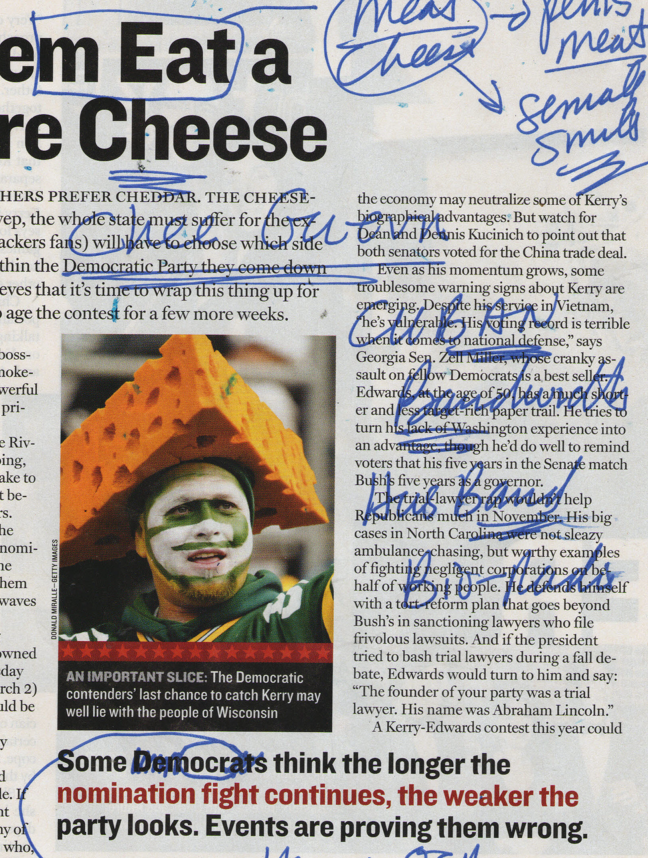 em Eat a
re Cheese
meat
Cheese
meat
HERS PREFER CHEDDAR. THE CHEESE-
yep, the whole state must suffer for the ex-
ackers fans) will have to choose which side
thin the Democratic Party they come down
eves that it's time to wrap this thing up for
o age the contest for a few more weeks.
boss-
moke-
werful
pri-
e Riv-
ping,
ake to
t be-
rs.
he
nomi-
ne
hem
waves
owned
day
rch 2)
uld be
y
d
le. If
nt
ny of
who,
DONALD MIRALLE—GETTY IMAGES
AN IMPORTANT SLICE: The Democratic
contenders' last chance to catch Kerry may
well lie with the people of Wisconsin
the economy may neutralize some of Kerry's
biographical advantages. But watch for
Dean and Dennis Kucinich to point out that
both senators voted for the China trade deal.
Even as his momentum grows, some
troublesome warning signs about Kerry are
emerging. Despite his service in Vietnam,
"he's vulnerable. His voting record is terrible
when it comes to national defense," says
Georgia Sen. Zell Miller, whose cranky as-
sault on fellow Democrats is a best seller.
Edwards, at the age of 50, has a much short-
er and less target-rich paper trail. He tries to
turn his lack of Washington experience into
an advantage, though he'd do well to remind
voters that his five years in the Senate match
Bush's five years as a governor.
The trial-lawyer rap wouldn't help
Republicans much in November. His big
cases in North Carolina were not sleazy
ambulance-chasing, but worthy examples
of fighting negligent corporations on be-
half of working people. He defends himself
with a tort-reform plan that goes beyond
Bush's in sanctioning lawyers who file
frivolous lawsuits. And if the president
tried to bash trial lawyers during a fall de-
bate, Edwards would turn to him and say:
"The founder of your party was a trial
lawyer. His name was Abraham Lincoln."
A Kerry-Edwards contest this year could
CUBAN
Band
Some Democrats think the longer the
nomination fight continues, the weaker the
party looks. Events are proving them wrong.